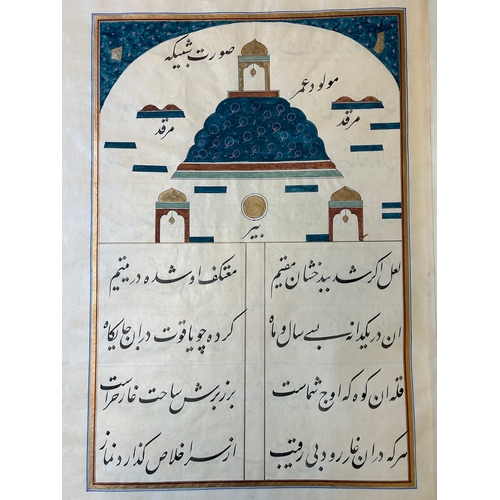 صورت شبیکه
مولود عمر
مرقد
مرقد
بیر
لعل اکر شد ببدخشان مقیم معتکف او شده در یتیم
ان در یکدانه بسے سال و ماه کرده چو یاقوت دران جایکاه
قله ان کوه که اوج شماست بر زبرش ساحت غار حراست
هر که دران غار رود بی رقیب از سر اخلاص کذارد نماز